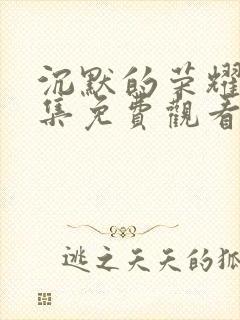 沉默的荣耀
集免費觀看
逃之夭夭的狐